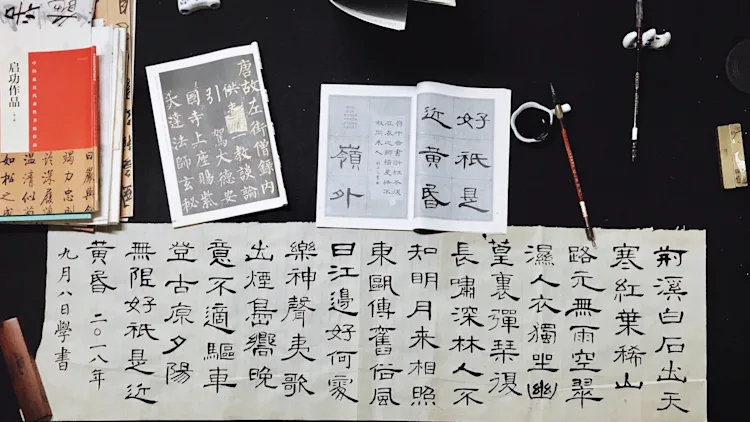 启功作品
日嚴與
竭力忠
深履
如松之
唐故左街僧錄内
供 教談論
引駕大德安
國寺上座賜紫
大達法師玄秘
好祇是
近黄昏
嶺外
荆溪白石出天
寒紅葉稀山
路元無雨空翠
濕人衣獨坐幽
篁裏彈琹復
長嘯深林人不
知明月來相照
東甌傳舊俗風
日江邊好何處
樂神聲夷歌
出煙島嚮晚
意不適驅車
登古原夕陽
無限好祇是近
黄昏 二〇一八年
九月八日學書